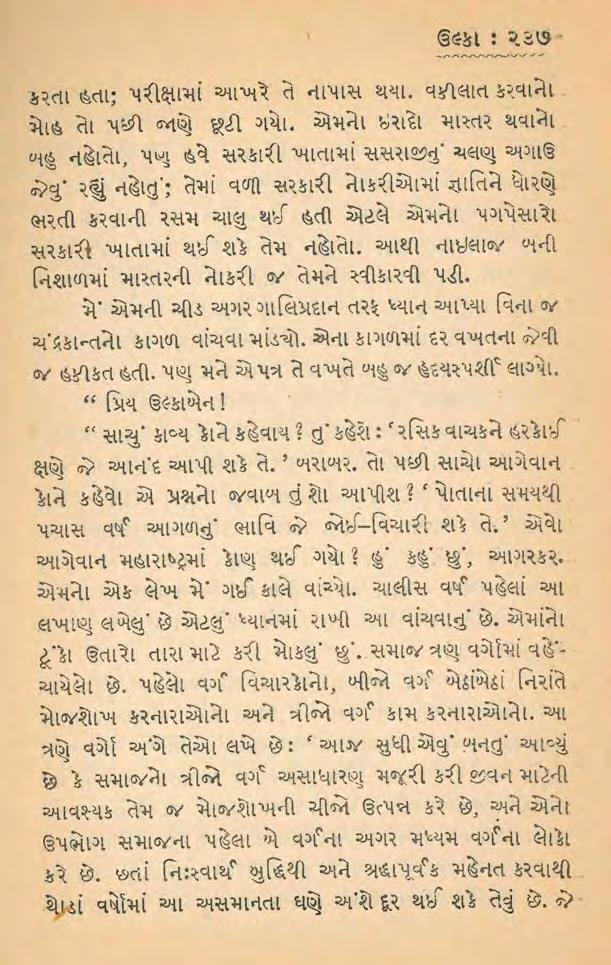 ઉલ્કા : ૨૩૭
કરતા હતા; પરીક્ષામાં આખરે તે નાપાસ થયા. વકીલાત કરવાનો
મોહ તો પછી જાણે છૂટી ગયો. એમનો ઇરાદો માસ્તર થવાનો
બહુ નહોતો, પણ હવે સરકારી ખાતામાં સસરાજીનું ચલણ અગાઉ
જેવું રહ્યું નહોતું; તેમાં વળી સરકારી નોકરીઓમાં જ્ઞાતિને ધોરણે
ભરતી કરવાની રસમ ચાલુ થઈ હતી એટલે એમનો પગપેસારો
સરકારી ખાતામાં થઈ શકે તેમ નહોતો. આથી નાઇલાજ બની
નિશાળમાં માસ્તરની નોકરી જ તેમને સ્વીકારવી પડી.
મેં એમની ચીડ અગર ગાલિપ્રદાન તરફ ધ્યાન આપ્યા વિના જ
ચંદ્રકાન્તનો કાગળ વાંચવા માંડ્યો. એના કાગળમાં દર વખતના જેવી
જ હકીકત હતી. પણ મને એ પત્ર તે વખતે બહુ જ હૃદયસ્પર્શી લાગ્યો.
“ પ્રિય ઉલ્કાબેન !
“ સાચું કાવ્ય કોને કહેવાય ? તું કહેશે : ‘ રસિક વાચકને હરકોઈ
ક્ષણે જે આનંદ આપી શકે તે. ’ બરાબર. તો પછી સાચો આગેવાન
કોને કહેવો એ પ્રશ્નનો જવાબ તું શો આપીશ ? ‘ પોતાના સમયથી
પચાસ વર્ષ આગળનું ભાવિ જે જોઈ–વિચારી શકે તે.’ એવો
આગેવાન મહારાષ્ટ્રમાં કોણ થઈ ગયો ? હું કહું છું, આગરકર.
એમનો એક લેખ મેં ગઈ કાલે વાંચ્યો. ચાલીસ વર્ષ પહેલાં આ
લખાણ લખેલું છે એટલું ધ્યાનમાં રાખી આ વાંચવાનું છે. એમાંનો
ટૂંકો ઉતારો તારા માટે કરી મોકલું છું. સમાજ ત્રણ વર્ગોમાં વહેં-
ચાયેલો છે. પહેલો વર્ગ વિચારકોનો, બીજો વર્ગ બેઠાંબેઠાં નિરાંતે
મોજશોખ કરનારાઓનો અને ત્રીજો વર્ગ કામ કરનારાઓનો. આ
ત્રણે વર્ગો અંગે તેઓ લખે છે : ‘ આજ સુધી એવું બનતું આવ્યું
છે કે સમાજનો ત્રીજો વર્ગ અસાધારણ મજૂરી કરી જીવન માટેની
આવશ્યક તેમ જ મોજશોખની ચીજો ઉત્પન્ન કરે છે, અને એનો
ઉપભોગ સમાજના પહેલા બે વર્ગના અગર મધ્યમ વર્ગના લોકો
કરે છે. છતાં નિઃસ્વાર્થ બુદ્ધિથી અને શ્રદ્ધાપૂર્વક મહેનત કરવાથી
થોડાં વર્ષોમાં આ અસમાનતા ઘણે અંશે દૂર થઈ શકે તેવું છે. જે